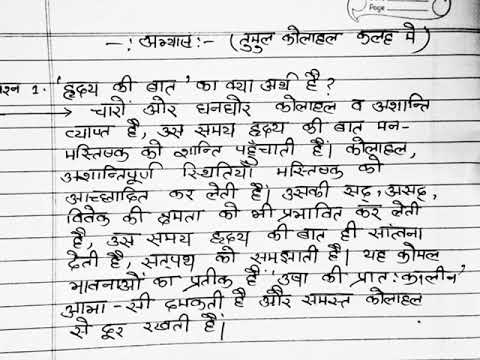 Page
-: अभ्यास :- (तुमुल कोलाहल कलह में)
प्रश्न 1. 'हृदय की बात' का क्या अर्थ है?
→ चारों ओर घनघोर कोलाहल व अशान्ति
व्याप्त है, उस समय हृदय की बात मन-
मस्तिष्क को शान्ति पहुँचाती है। कोलाहल,
अशान्तिपूर्ण स्थितियाँ मस्तिष्क को
आच्छादित कर लेती है। उसकी सद्, असद्,
विवेक की क्षमता को भी प्रभावित कर लेती
है, उस समय हृदय की बात ही सांतना
देती है, सत्पथ को समझाती है। यह कोमल
भावनाओं का प्रतीक है 'उषा की प्रात:कालीन'
आभा-सी दमकती है और समस्त कोलाहल
से दूर रखती है।